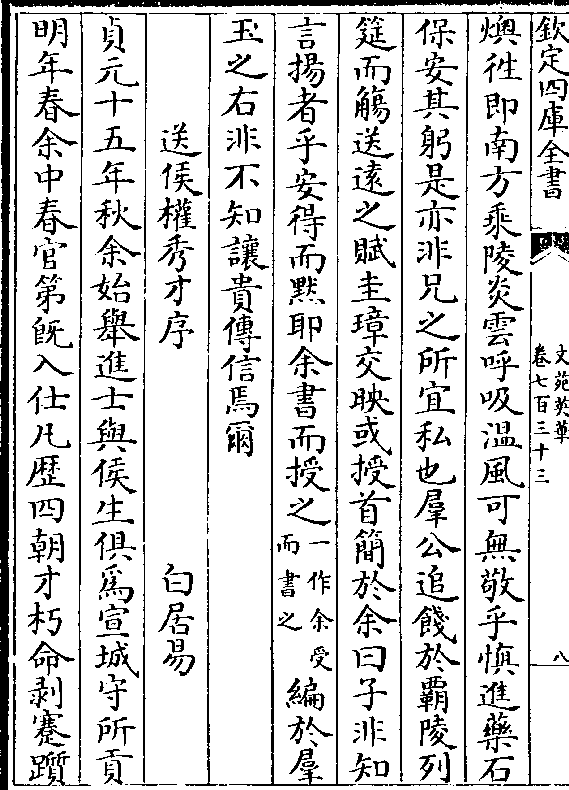 欽定四庫全書
文苑英華
卷七百三十三
八
燠徃即南方乘陵炎雲呼吸溫風可無敬乎慎進藥石
保安其躬是亦非兄之所宜私也羣公追餞於霸陵列
筵而觴送遠之賦圭璋交映或授首簡於余曰子非知
言揚者乎安得而黙耶余書而授之一作余受而書之編於羣
玉之右非不知讓貴傳信焉爾
送侯權秀才序 白居易
貞元十五年秋余始舉進士與侯生俱爲宣城守所貢
明年春余中春官第旣入仕凡歴四朝才朽命剥蹇躓